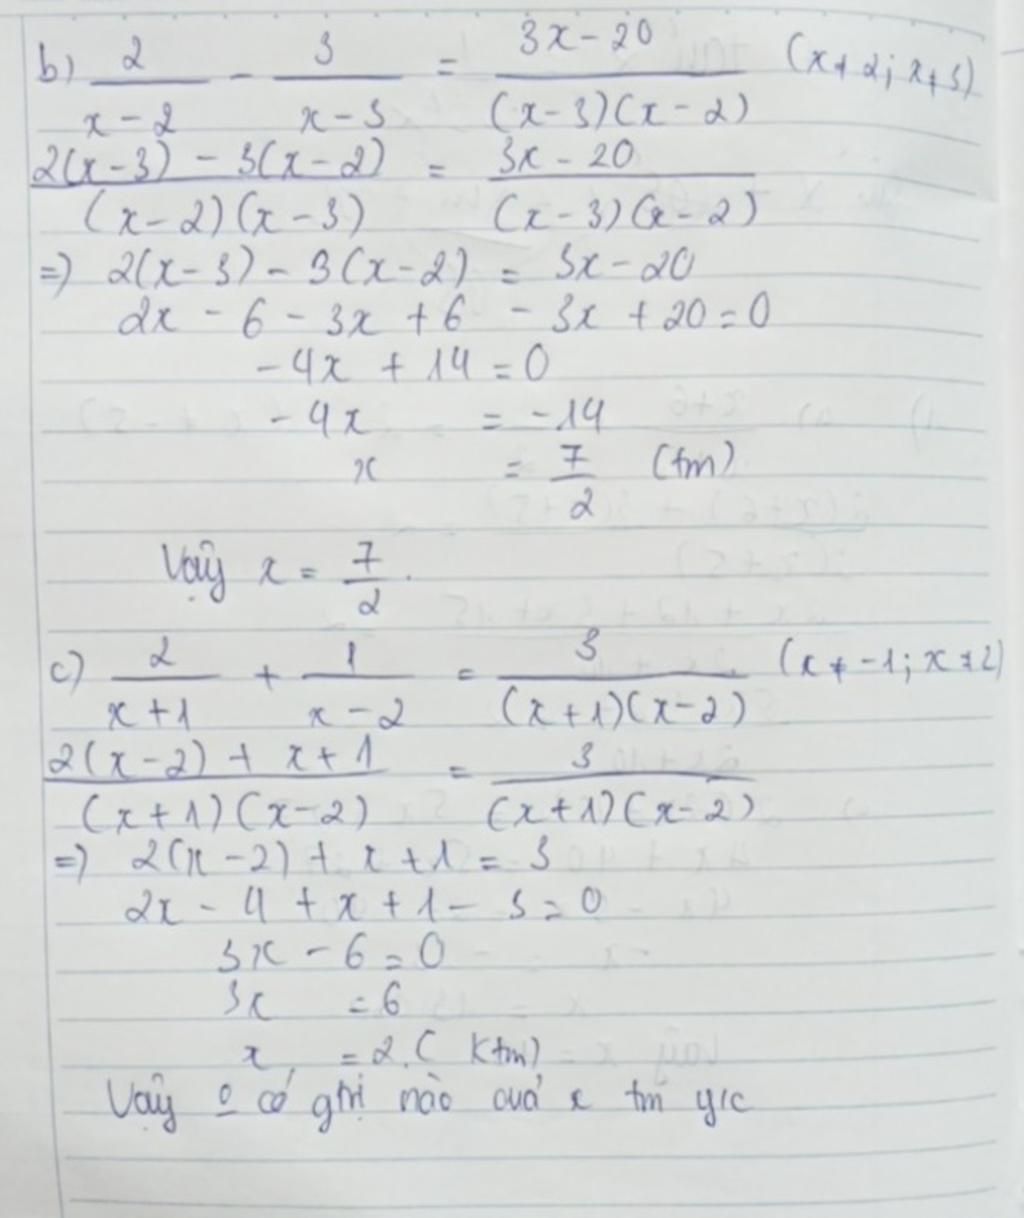 b) 2/(x-2) - 3/(x-3) = (3x-20)/((x-3)(x-2)) (x≠2; x≠3)
(2(x-3) - 3(x-2))/((x-2)(x-3)) = (3x-20)/((x-3)(x-2))
=> 2(x-3) - 3(x-2) = 3x-20
2x - 6 - 3x + 6 - 3x + 20 = 0
-4x + 14 = 0
-4x = -14
x = 7/2 (tm)
Vậy x = 7/2.
c) 2/(x+1) + 1/(x-2) = 3/((x+1)(x-2)) (x≠-1; x≠2)
(2(x-2) + x+1)/((x+1)(x-2)) = 3/((x+1)(x-2))
=> 2(x-2) + x+1 = 3
2x - 4 + x + 1 - 3 = 0
3x - 6 = 0
3x = 6
x = 2. (Ktm)
Vậy o có gtrị nào của x tm y/c